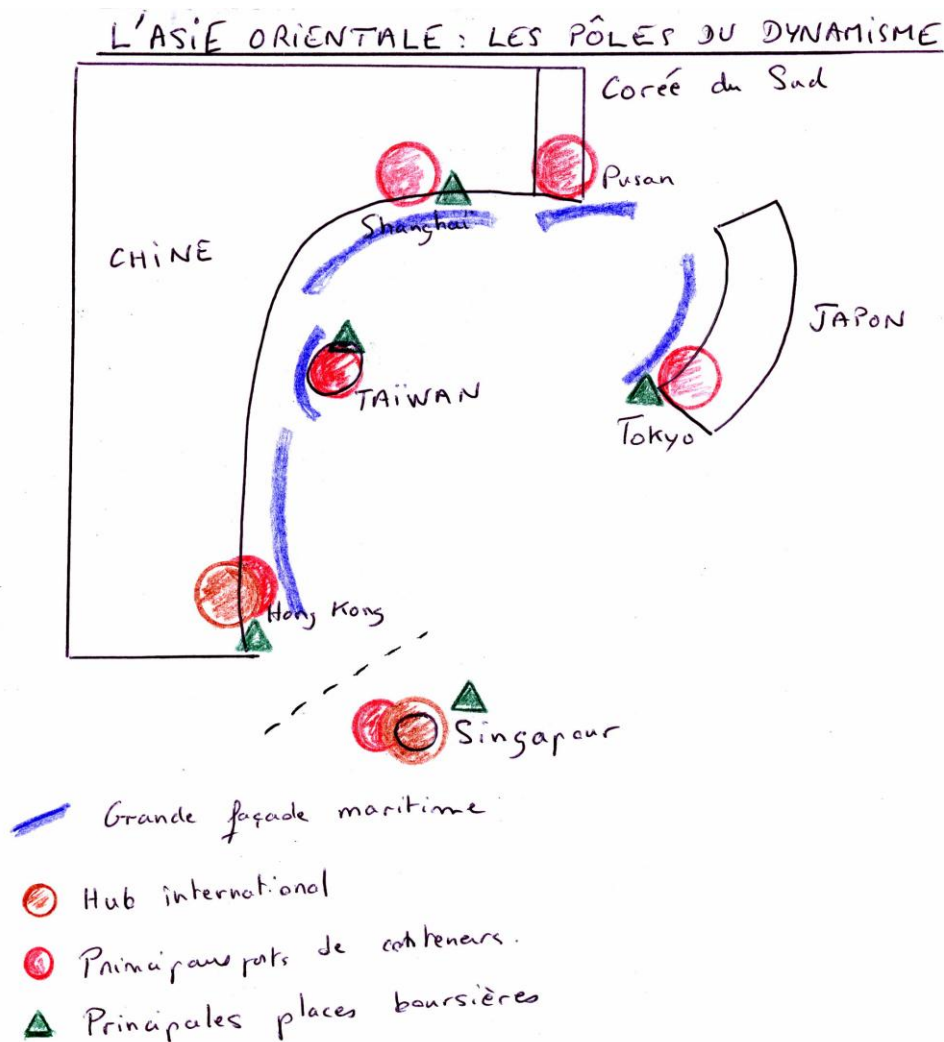 L'ASIE ORIENTALE : LES PÔLES DU DYNAMISME
Corée du Sud
Pusan
Shanghai
CHINE
JAPON
TAÏWAN
Tokyo
Hong Kong
Singapour
Grande façade maritime
Hub international
Principaux ports de conteneurs.
Principales places boursières